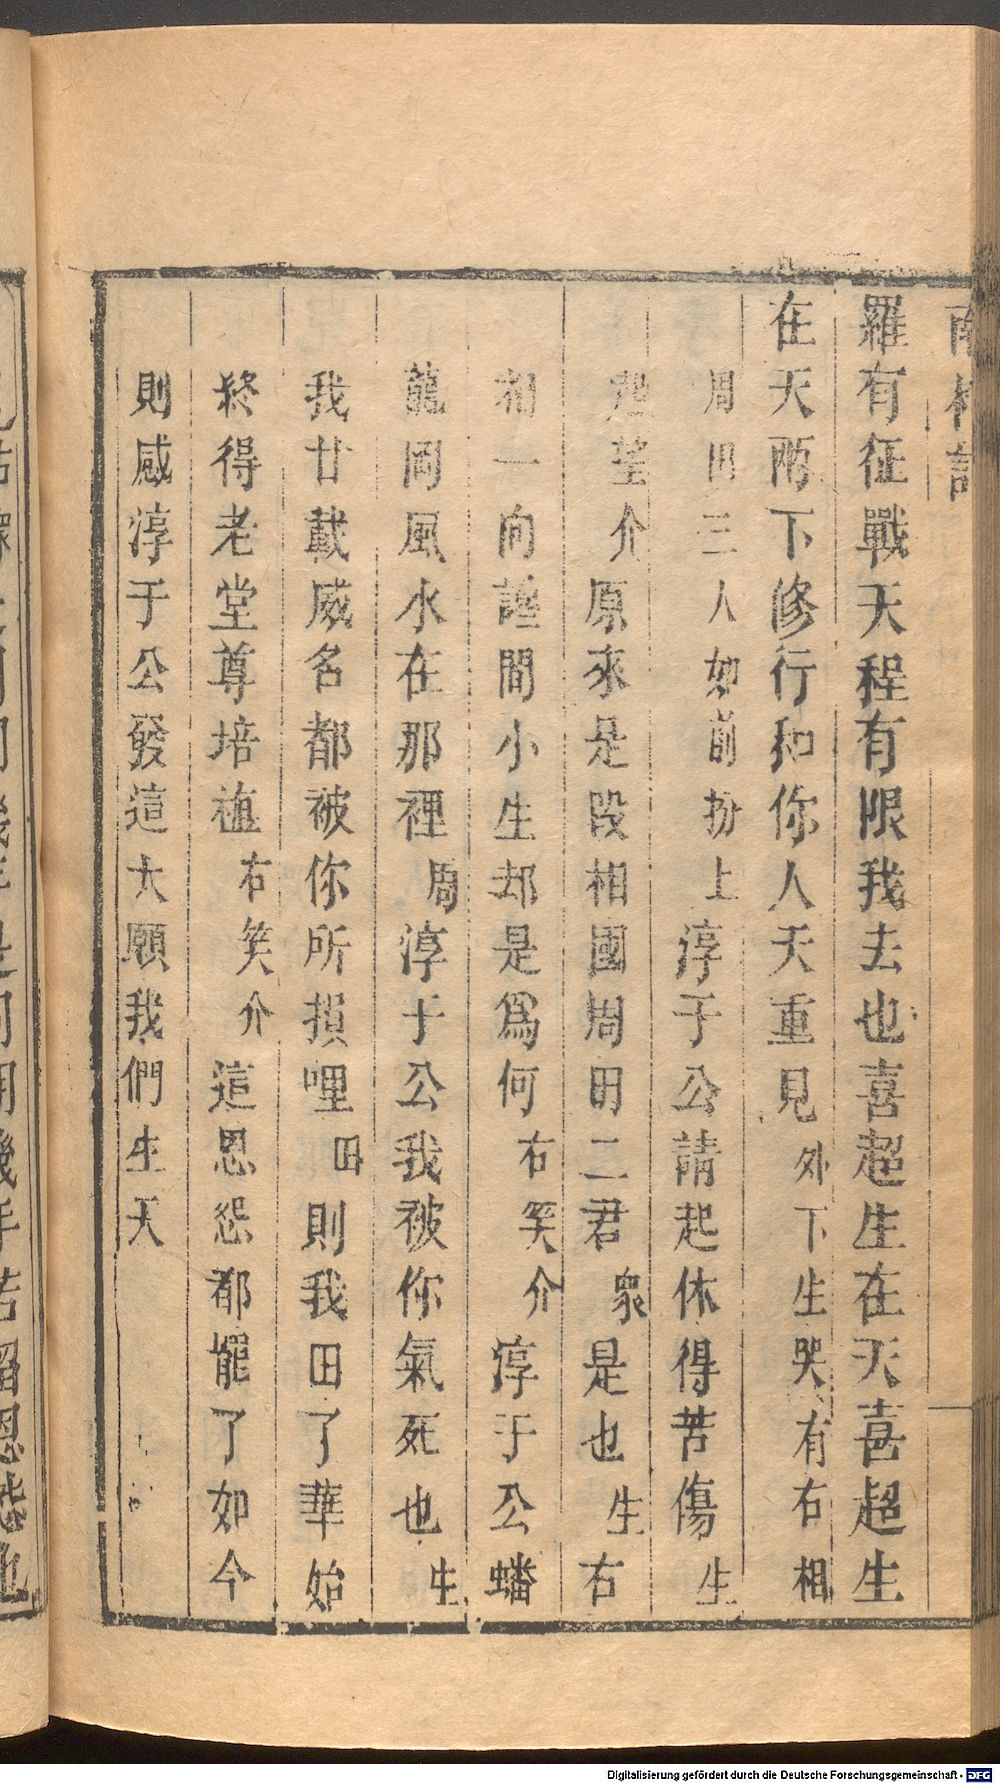 南柯記
羅有征戰天程有限我去也喜超生在天喜超生
在天而下修行和你人天重見外下生哭有右相
周田三人如前扮上淳于公請起休得苦傷生
起望介原來是段相國周田二君衆是也生右
相一向讒間小生却是爲何右笑介淳于公蟠
龍岡風水在那裡周淳于公我被你氣死也生
我廿載威名都被你所損哩田則我田了華始
終得老堂尊培植右笑介這恩怨都罷了如今
則感淳于公發這大願我們生天
Digitalisierung gefördert durch die Deutsche Forschungsgemeinschaft - DFG